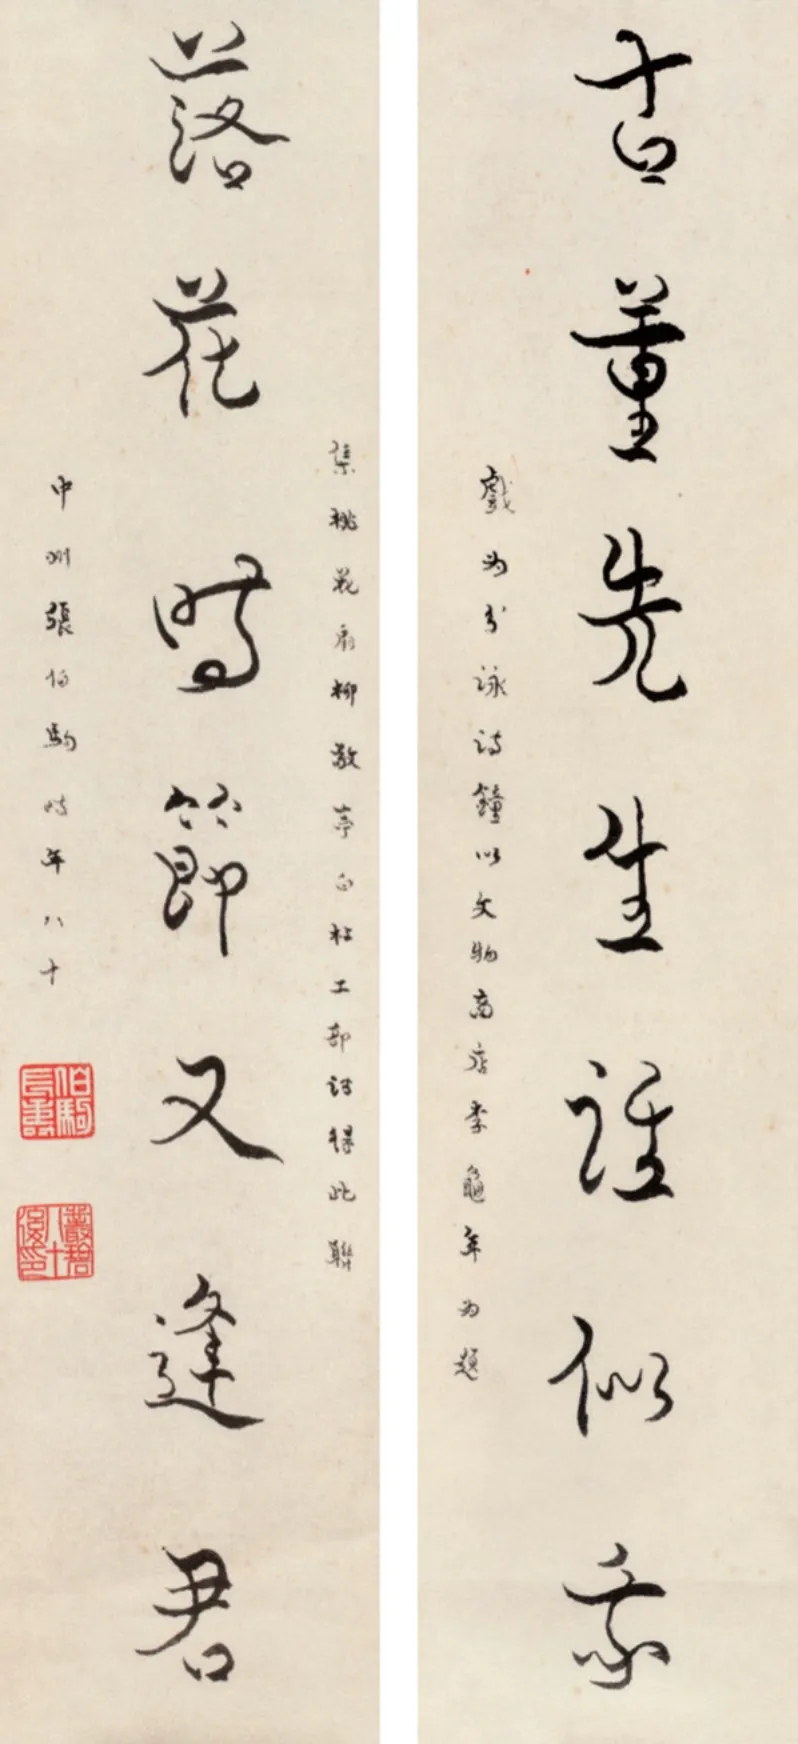 古董先生誰似我
戲為分詠詩鐘以文物商店李龜年為題
落花時節又逢君
集桃花扇柳敬亭白杜工部詩得此聯
中州張伯駒時年八十
伯駒長壽
叢碧八十後印